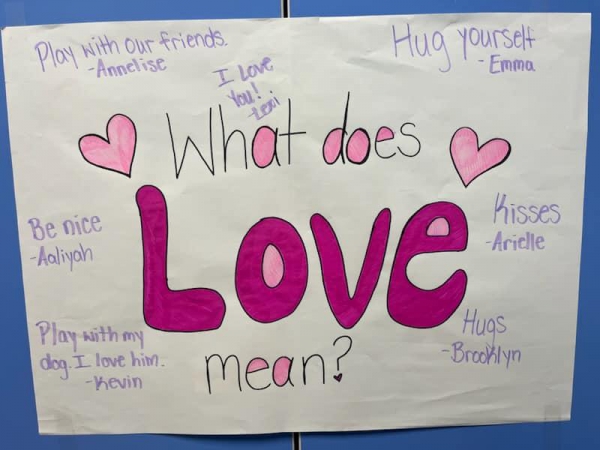 Play with our friends.
-Annelise
Hug yourself
-Emma
I Love
You!
-Lexi
What does
Love
mean?
Be nice
-Aaliyah
Kisses
-Arielle
Play with my
dog. I love him.
-Kevin
Hugs
-Brooklyn